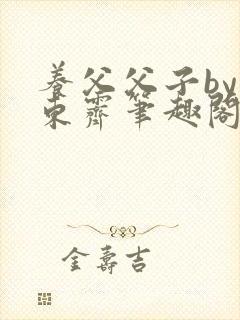 养父父子by
东霁笔趣阁
金寿吉